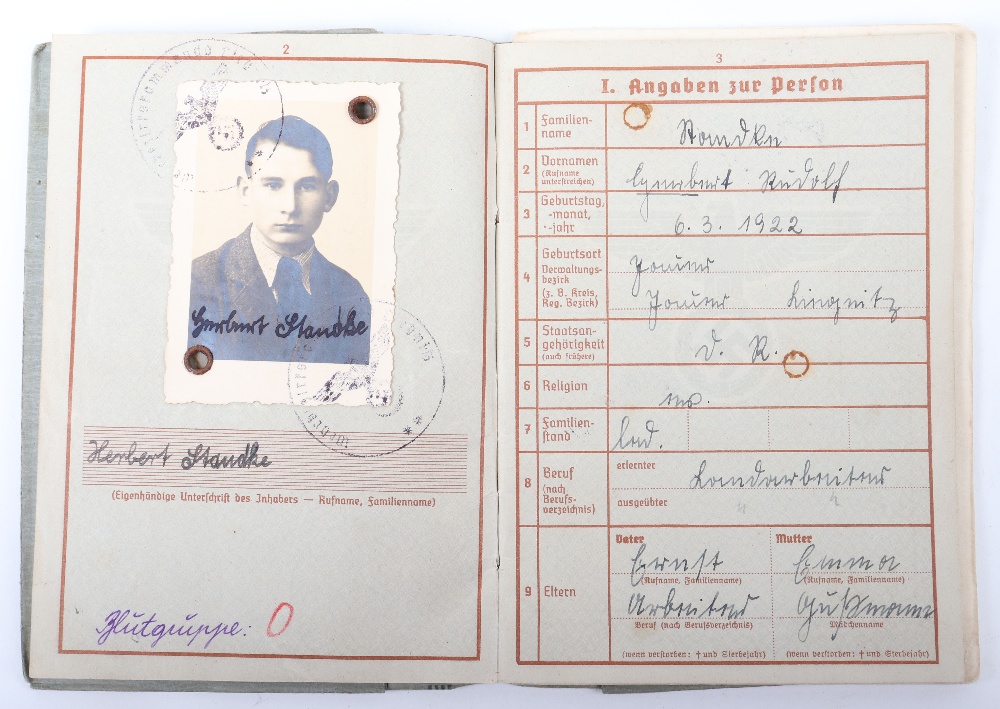 2
Herbert Standke
Herbert Standke
(Eigenhändige Unterschrift des Inhabers — Rufname, Familienname)
Blutgruppe: 0
3
I. Angaben zur Person
1 Familien-
name
Standke
2 Vornamen
(Rufname
unterstreichen)
Herbert Rudolf
3 Geburtstag,
-monat,
-jahr
6. 3. 1922
4 Geburtsort
Verwaltungs-
bezirk
(z. B. Kreis,
Reg. Bezirk)
Jauer
Jauer Liegnitz
5 Staatsan-
gehörigkeit
(auch frühere)
D. R.
6 Religion
ev.
7 Familien-
stand
led.
8 Beruf
(nach
Berufs-
verzeichnis)
erlernter
Landarbeiter
ausgeübter
"
9 Eltern
Vater
Ernst
(Rufname, Familienname)
Arbeiter
Beruf (nach Berufsverzeichnis)
(wenn verstorben: † und Sterbejahr)
Mutter
Emma
(Rufname, Familienname)
Gußmann
Mädchenname
(wenn verstorben: † und Sterbejahr)